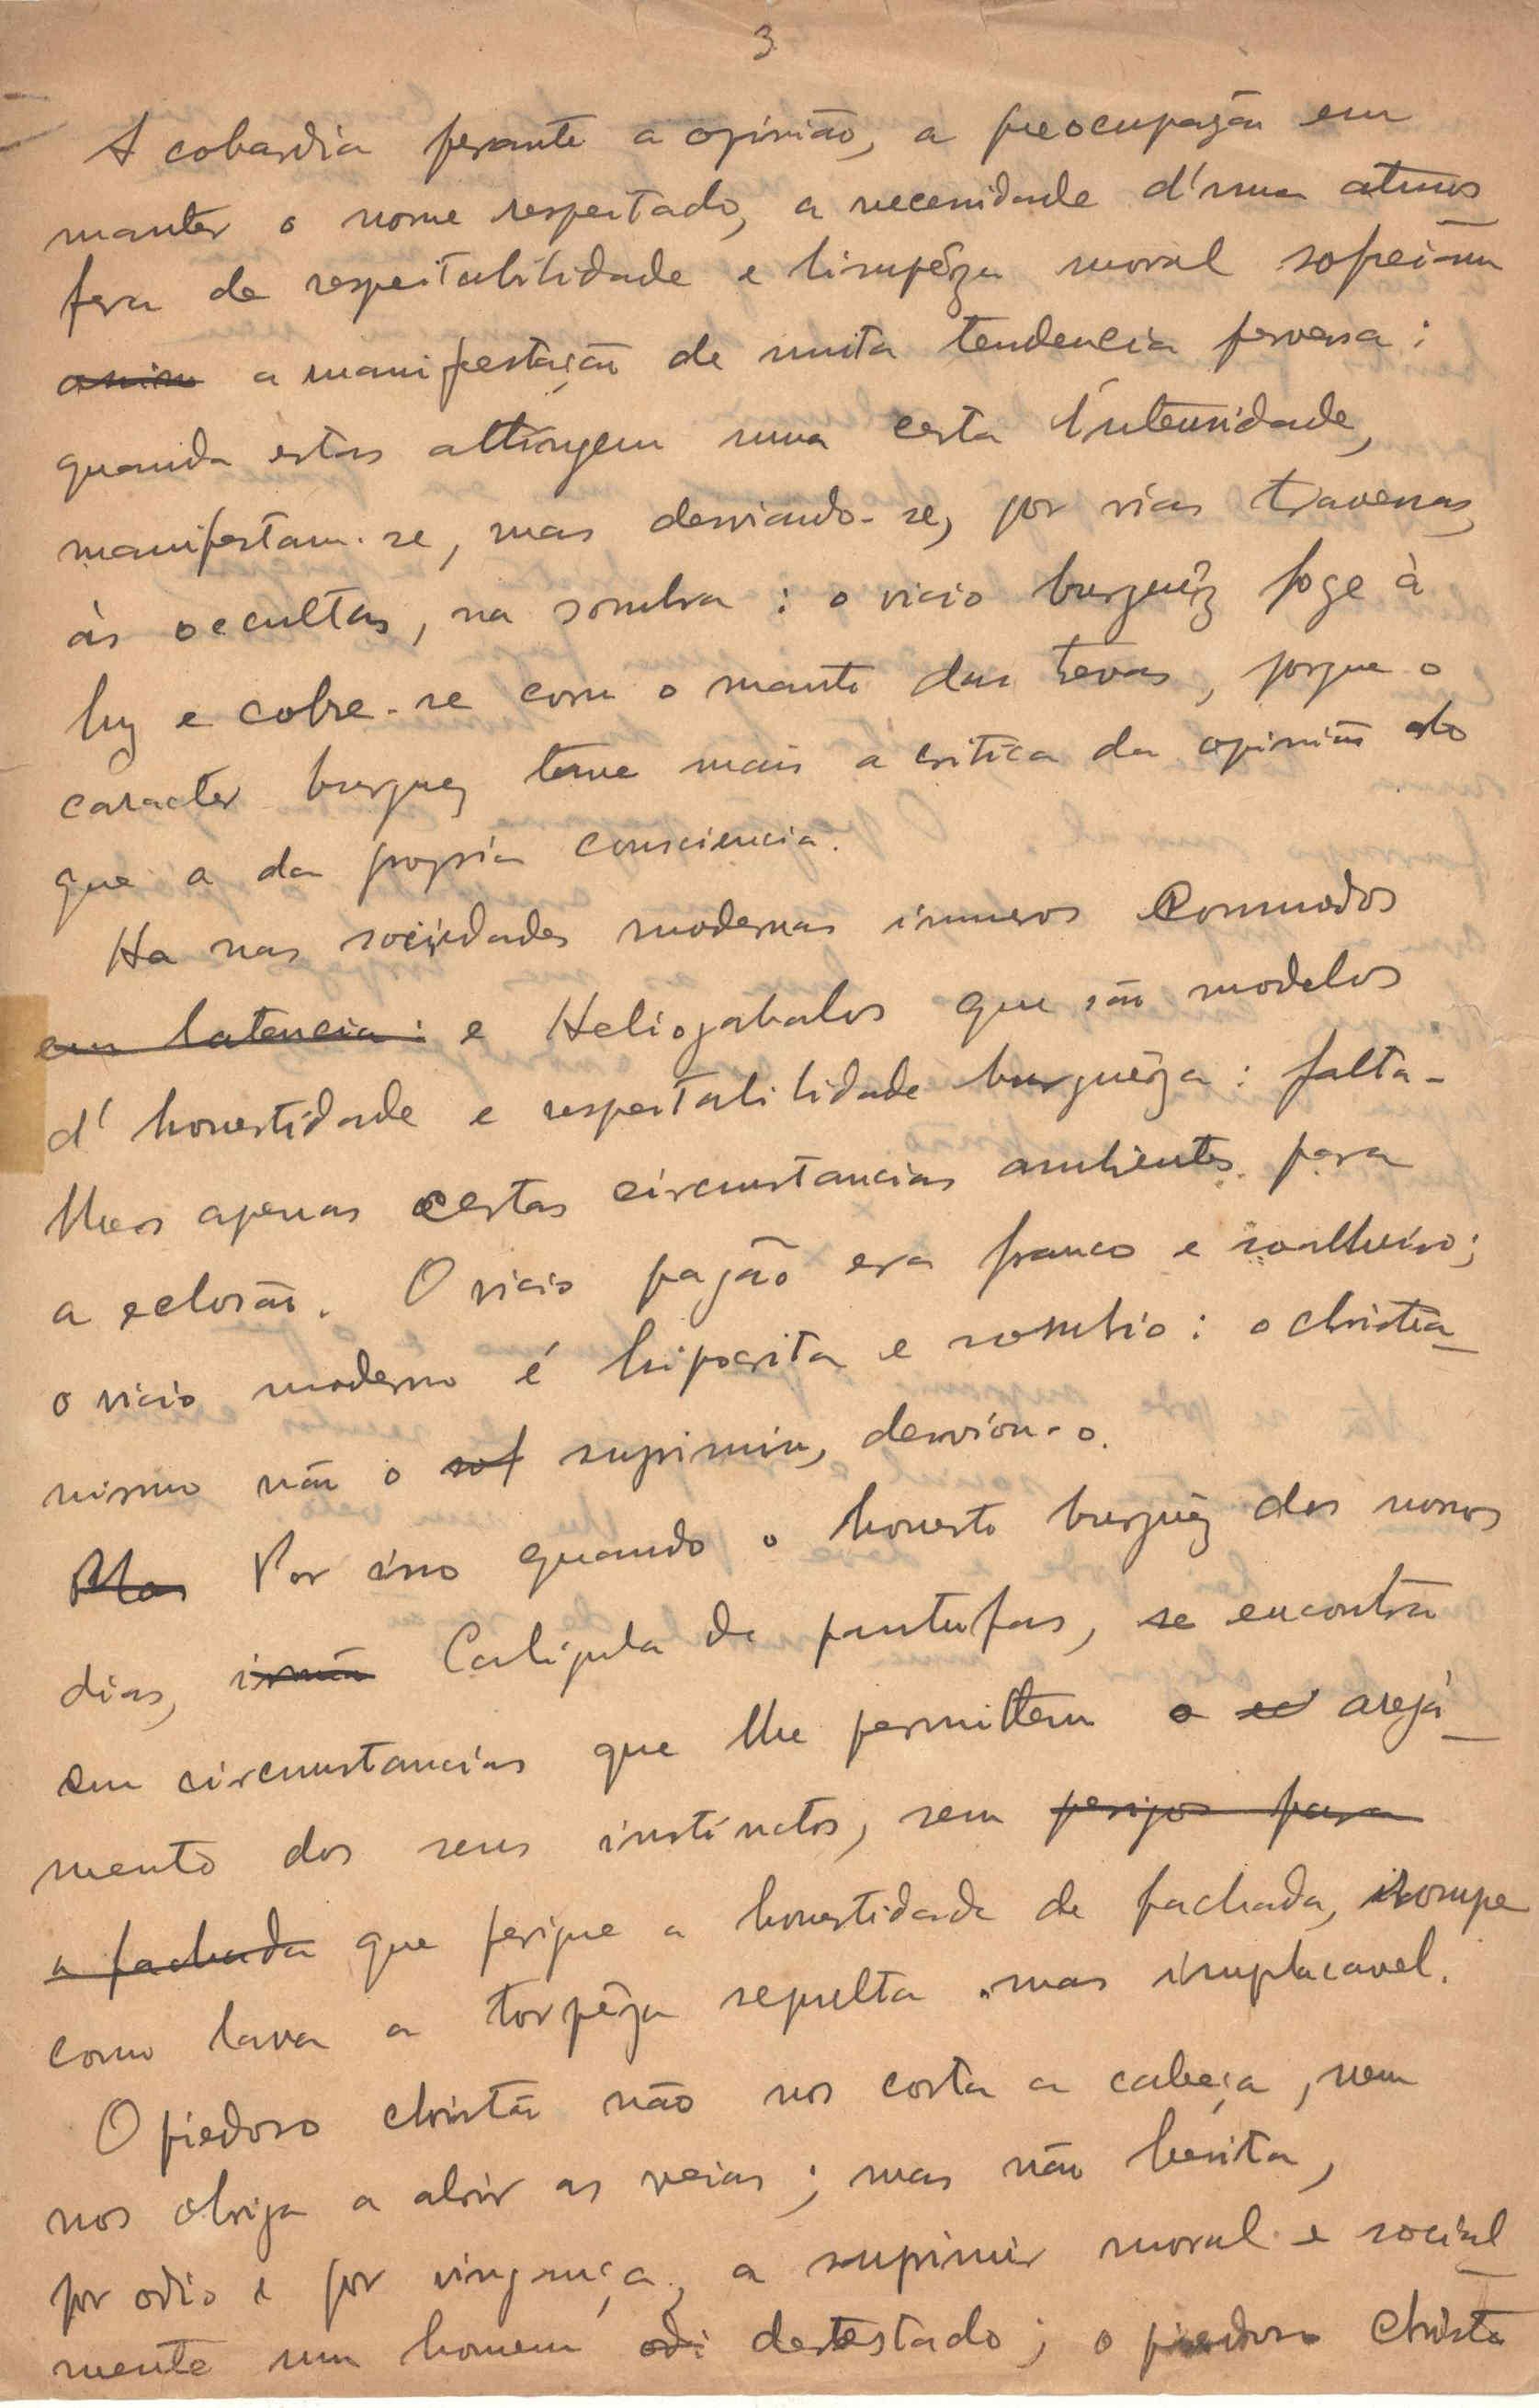 3
A cobardia perante a opinião, a preocupação em
manter o nome respeitado, a necessidade d'uma atmos
fera de respeitabilidade e limpêza moral sofreiam
assim a manifestação de muita tendencia perversa:
quando estas attingem uma certa intensidade,
manifestam-se, mas desviando-se, por vias travessas,
às occultas, na sombra: o vicio burguêz foge à
luz e cobre-se com o manto das trevas, porque o
caracter burguez teme mais a critica da opinião do
que a da propria consciencia.
Ha nas sociedades modernas inumeros Commodos
em latencia: e Heliogabalos que são modelos
d'honestidade e respeitabilidade burguêza: falta-
lhes apenas certas circumstancias ambientes para
a eclosão. O vicio pagão era franco e soalheiro;
o vicio moderno é hipocrita e sombrio: o christia-
nismo não o sof suprimiu, desviou-o.
Mas Por isso quando o honesto burguêz dos nossos
dias, irmão Caligula de pantufas, se encontra
em circumstancias que lhe permittem o arejá-
mento dos seus instinctos, sem perigos para
a fachada que perigue a honestidade de fachada, irrompe
como lava a torpêza sepulta mas implacavel.
O piedoso christão não nos corta a cabeça, nem
nos obriga a abrir as veias; mas não hesita,
por odio e por vingança, a suprimir moral e social-
mente um homem odi detestado; o piedoso christã